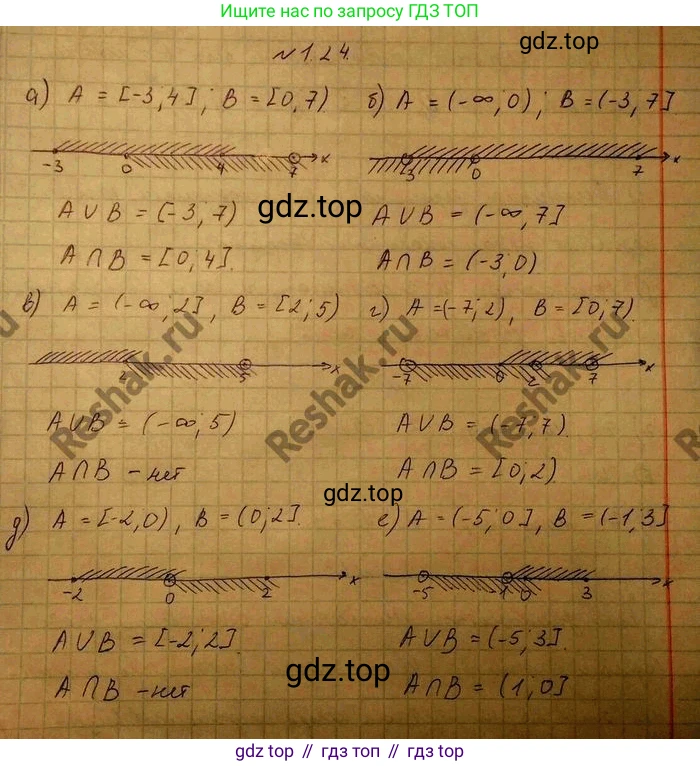 Ищите нас по запросу ГДЗ ТОП
gdz.top
N 1.24.
а) A = [-3; 4]; B = [0; 7).
б) A = (-∞; 0); B = (-3; 7]
-3 0 4 7 x
-3 0 7 x
A∪B = (-3; 7)
gdz.top
A∪B = (-∞; 7]
A∩B = [0; 4].
A∩B = (-3; 0)
в) A = (-∞; 2], B = [2; 5)
г) A = (-7; 2), B = [0; 7).
2 5 x
-7 0 2 7 x
Reshak.ru
Reshak.ru
A∪B = (-∞; 5)
A∪B = (-7; 7).
A∩B - нет
A∩B = [0; 2).
gdz.top
д) A = [-2; 0), B = (0; 2].
е) A = (-5; 0], B = (-1; 3]
-2 0 2 x
-5 1 0 3 x
A∪B = [-2; 2].
A∪B = (-5; 3].
gdz.top
A∩B - нет
A∩B = (1; 0]
gdz top // гдз топ // gdz.top